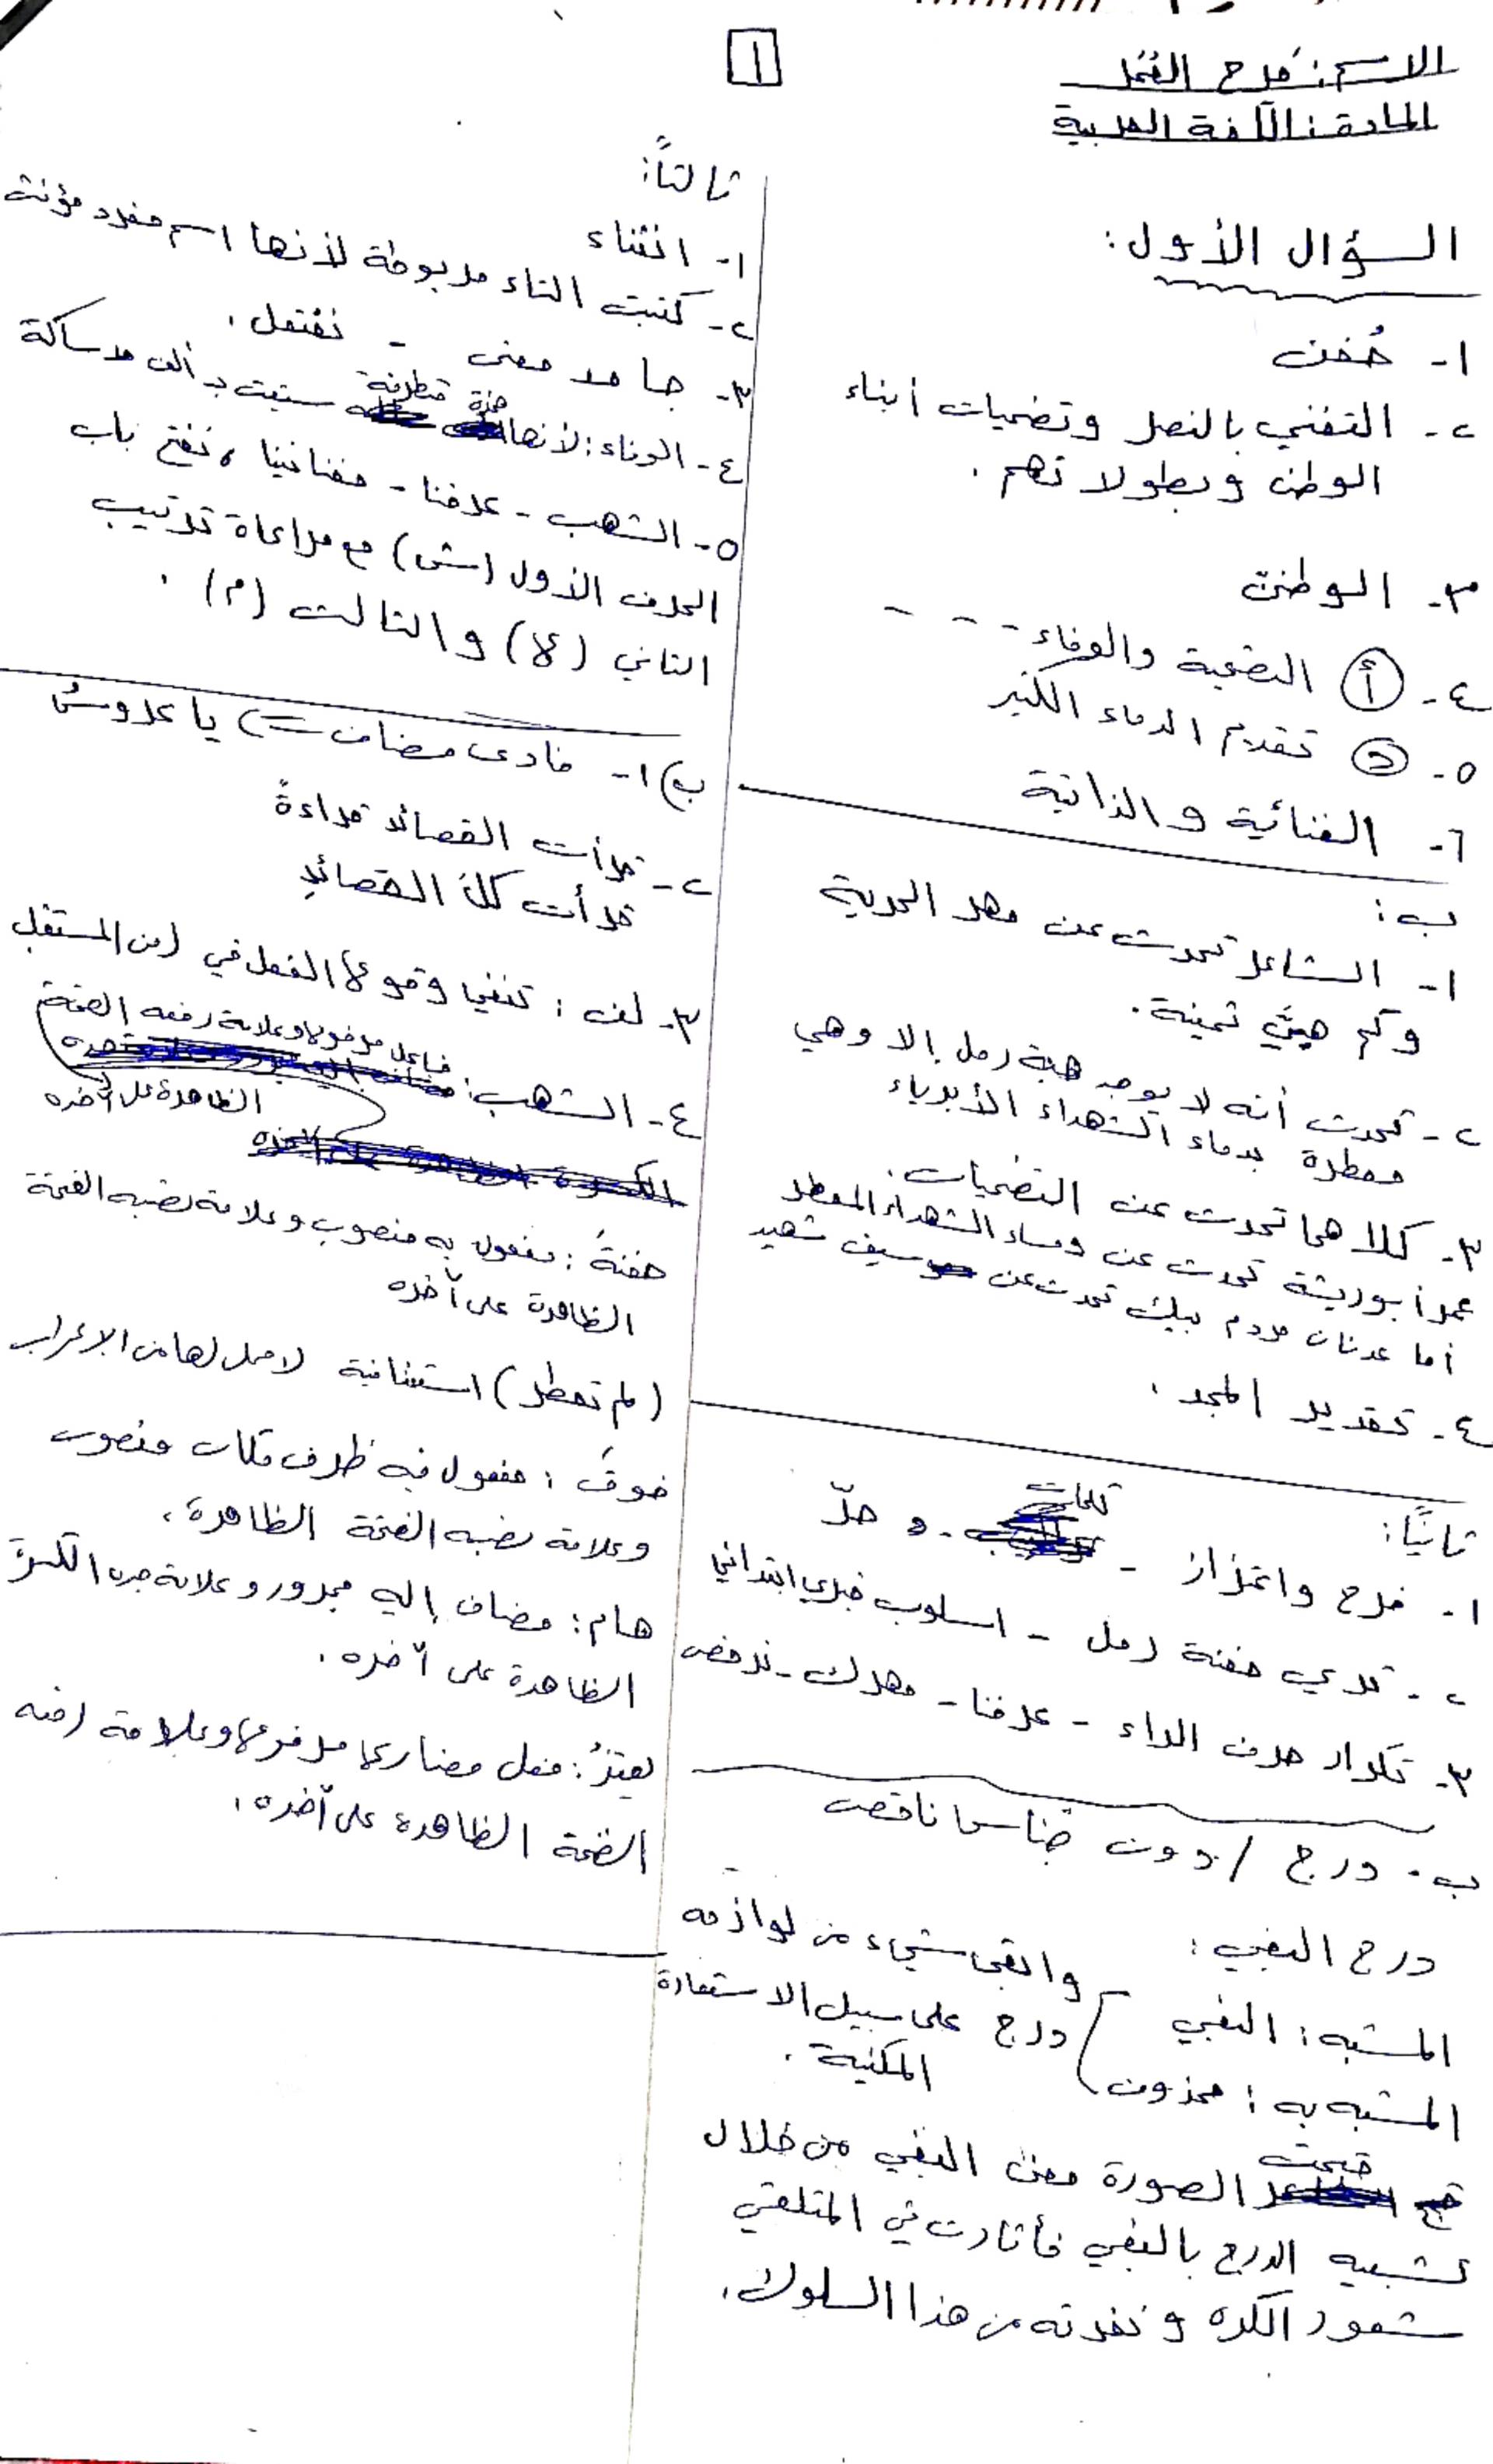 ١
الاسم: فرح الفحل
المادة: اللغة العربية
السؤال الأول:
١- خُففن
٢- التغني بالنصر وتضحيات أبناء
الوطن وبطولاتهم.
٣- الوطنيّ
٤- أ التضحية والوفاء - - -
٥- تقديم الدماء الكثير
٦- الغنائية والذاتية
ب:
١- الشاعر تحدث عن مهر الحرية
وكم هيّ ثمينة.
٢- تحدث أنه لا يوجد هبة رمل إلا وهي
معطرة بدماء الشهداء الأبرياء
٣- كلاهما تحدث عن التضحيات.
عمر أبو ريشة تحدث عن دماء الشهداء المعطر
أما عدنان مردم بيك تحدث عن سيف شهيد
٤- تقدير المجد.
ثانياً:
١- فرح واعتزاز - كلمات - و هزّ
٢- تعري حفنة رمل - اسلوب خبري ابتدائي
٣- تكرار حرف الراء - عرفنا - مهرك - نرخص
ب- درج / دون جناس ناقص
درج البغي:
المشبه: البغي
المشبه به: محذوف
وابقى شيء من لوازمه
درج على سبيل الاستعارة
المكنية.
قبحت الصورة معنى البغي من خلال
تشبيه الدرج بالبغي فأثارت في المتلقي
شعور الكره و نفرته من هذا السلوك.
ثالثاً:
١- انثناء
٢- كتبت التاء مربوطة لأنها اسم مفرد مؤنث
٣- جامد معنى - نفتعل.
٤- الوفاء: لأنها همزة متطرفة سبقت بـ ألف مد ساكنة
٥- الشهب - عرفنا - مغنانينا، نفتح باب
الحرف الأول (ش) مع مراعاة ترتيب
الثاني (ه) والثالث (م).
ب) ١- منادى مضاف => يا عروسُ
٢- قرأت القصائد قراءةً
قرأت كلَّ القصائدِ
٣- لن: تنفي وقوع الفعل في زمن المستقبل
٤- الشهب: فاعل مرفوع وعلامة رفعه الضمة
الظاهرة على آخره
حفنةً: مفعول به منصوب وعلامة نصبه الفتحة
الظاهرة على آخره
(لم تعطر) استئنافية لا محل لها من الإعراب
فوقَ: مفعول فيه ظرف مكان منصوب
وعلامة نصبه الفتحة الظاهرة.
هام: مضاف إليه مجرور وعلامة جره الكسرة
الظاهرة على آخره.
يعتزُ: فعل مضارع مرفوع وعلامة رفعه
الضمة الظاهرة على آخره.